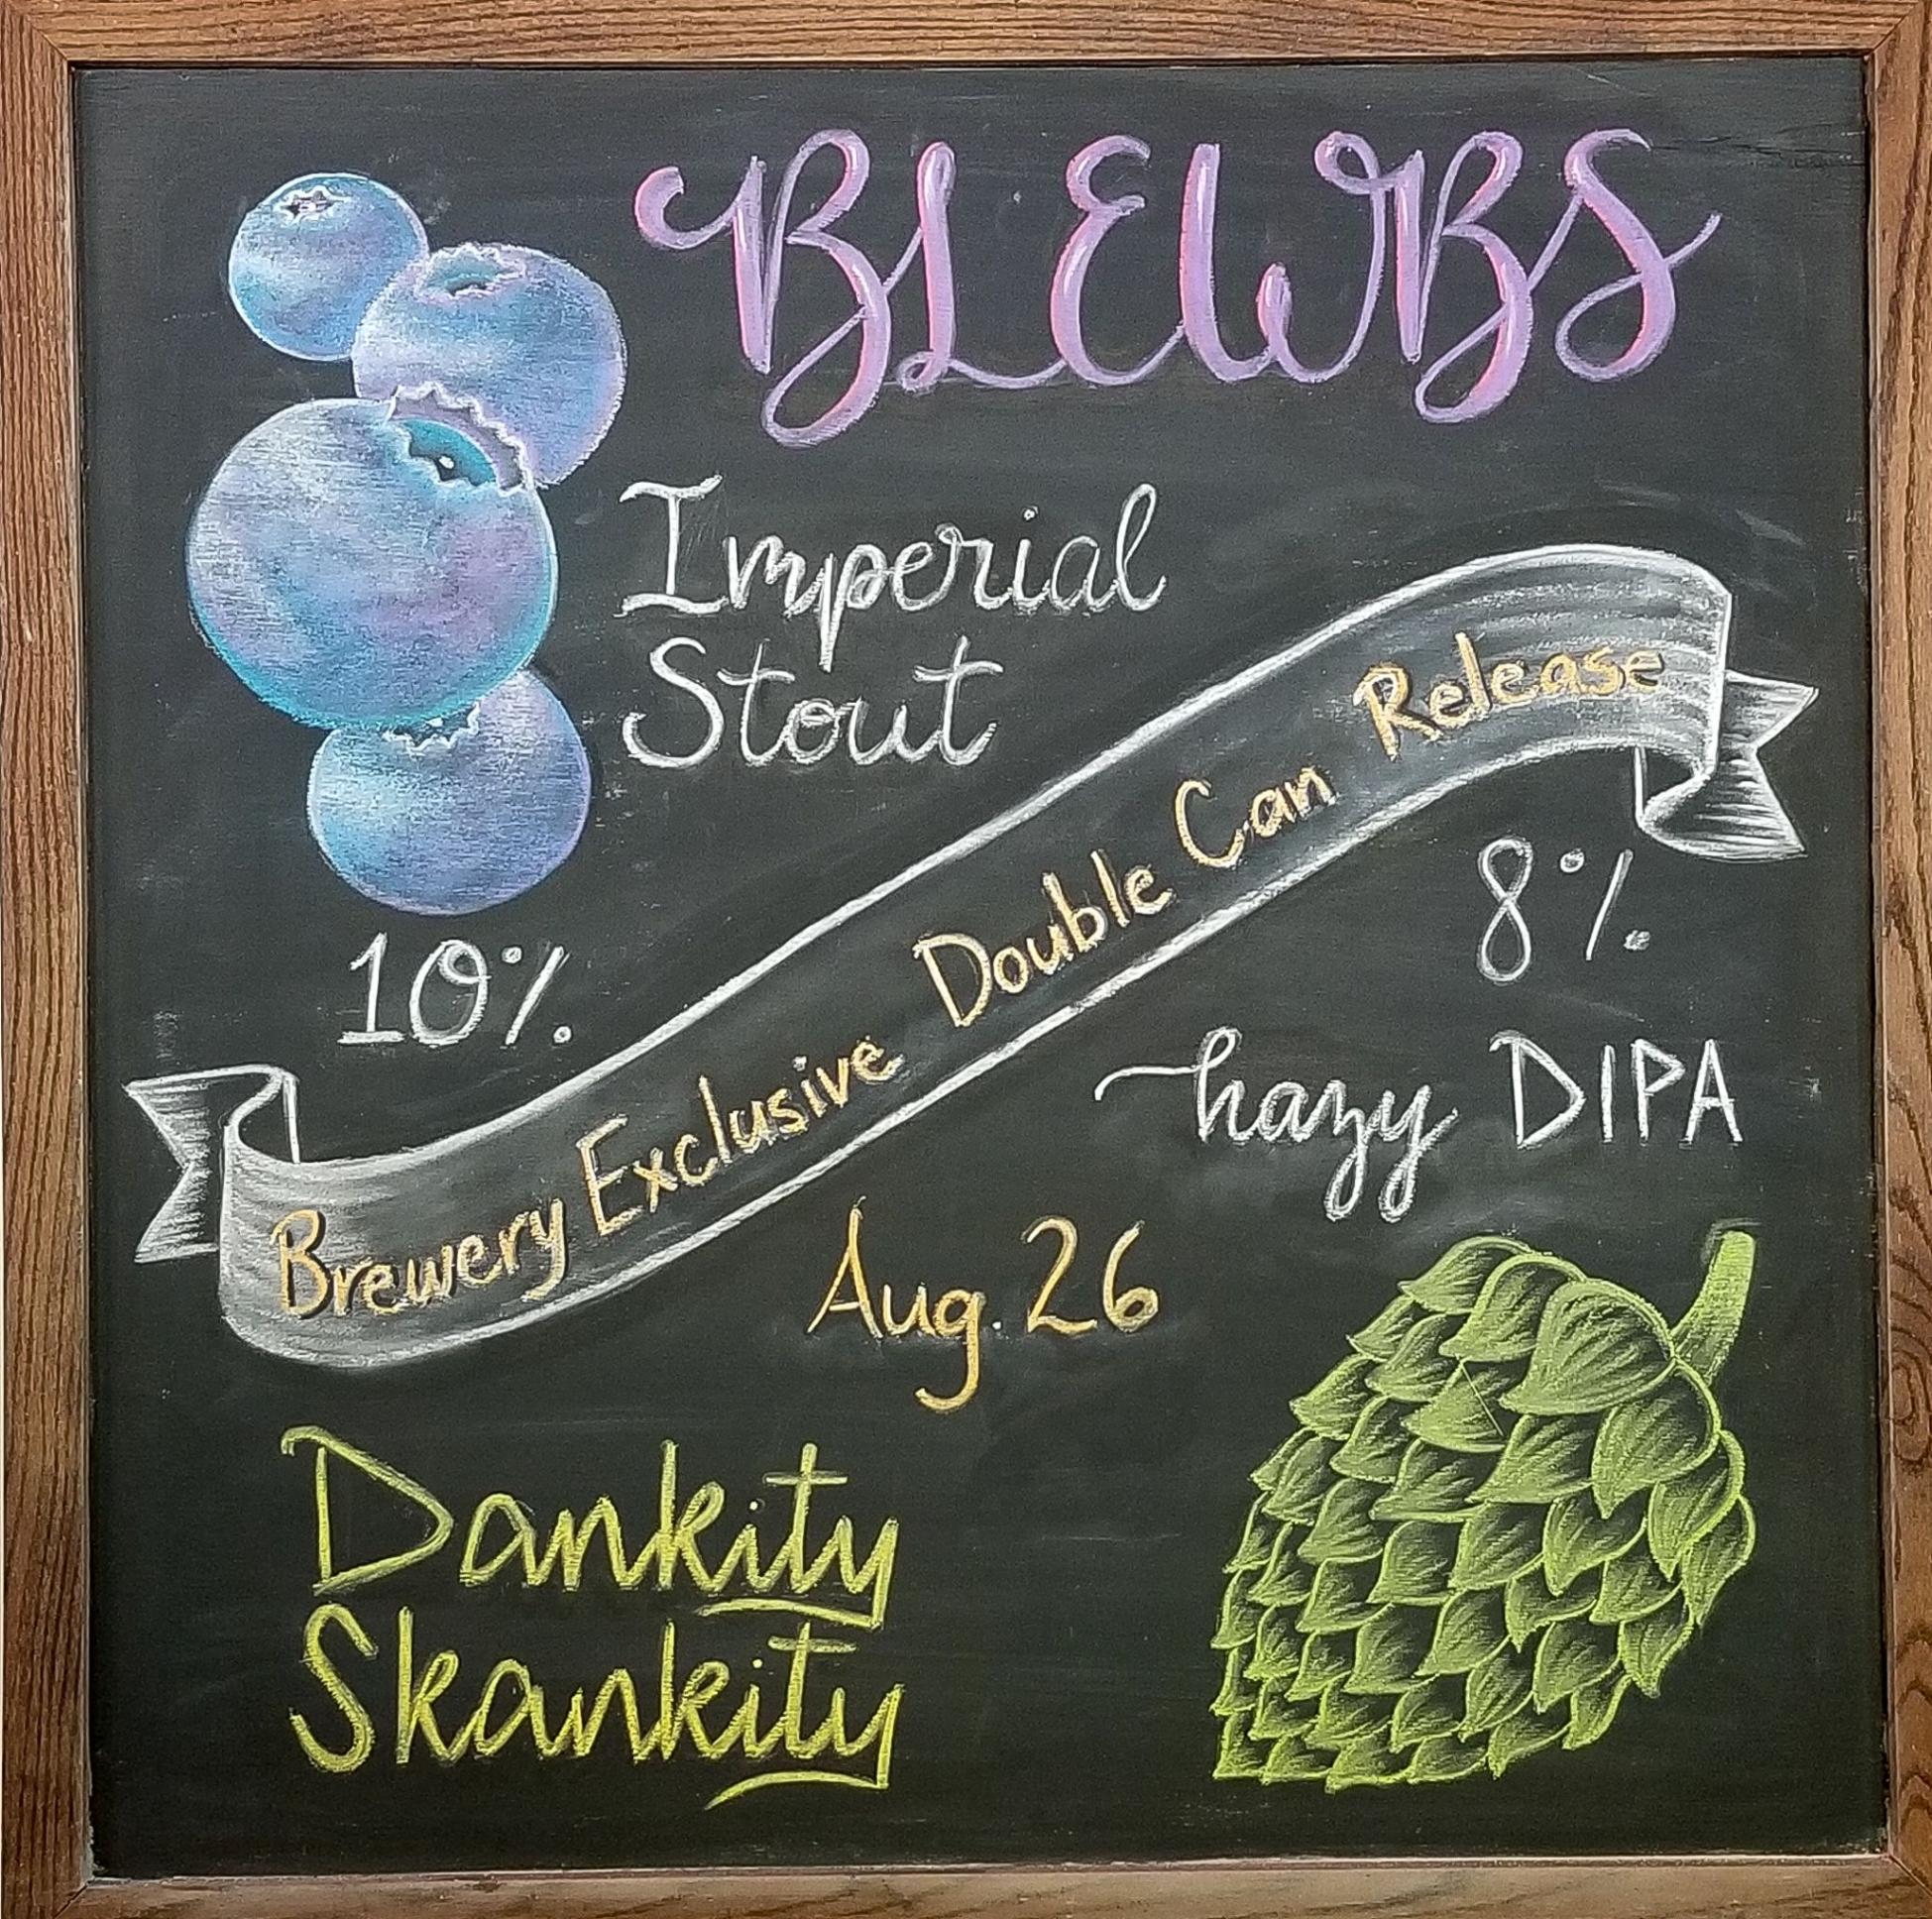 BLEWBS
Imperial
Stout
10%
Brewery Exclusive Double Can Release
8%
hazy DIPA
Aug. 26
Dankity
Skankity